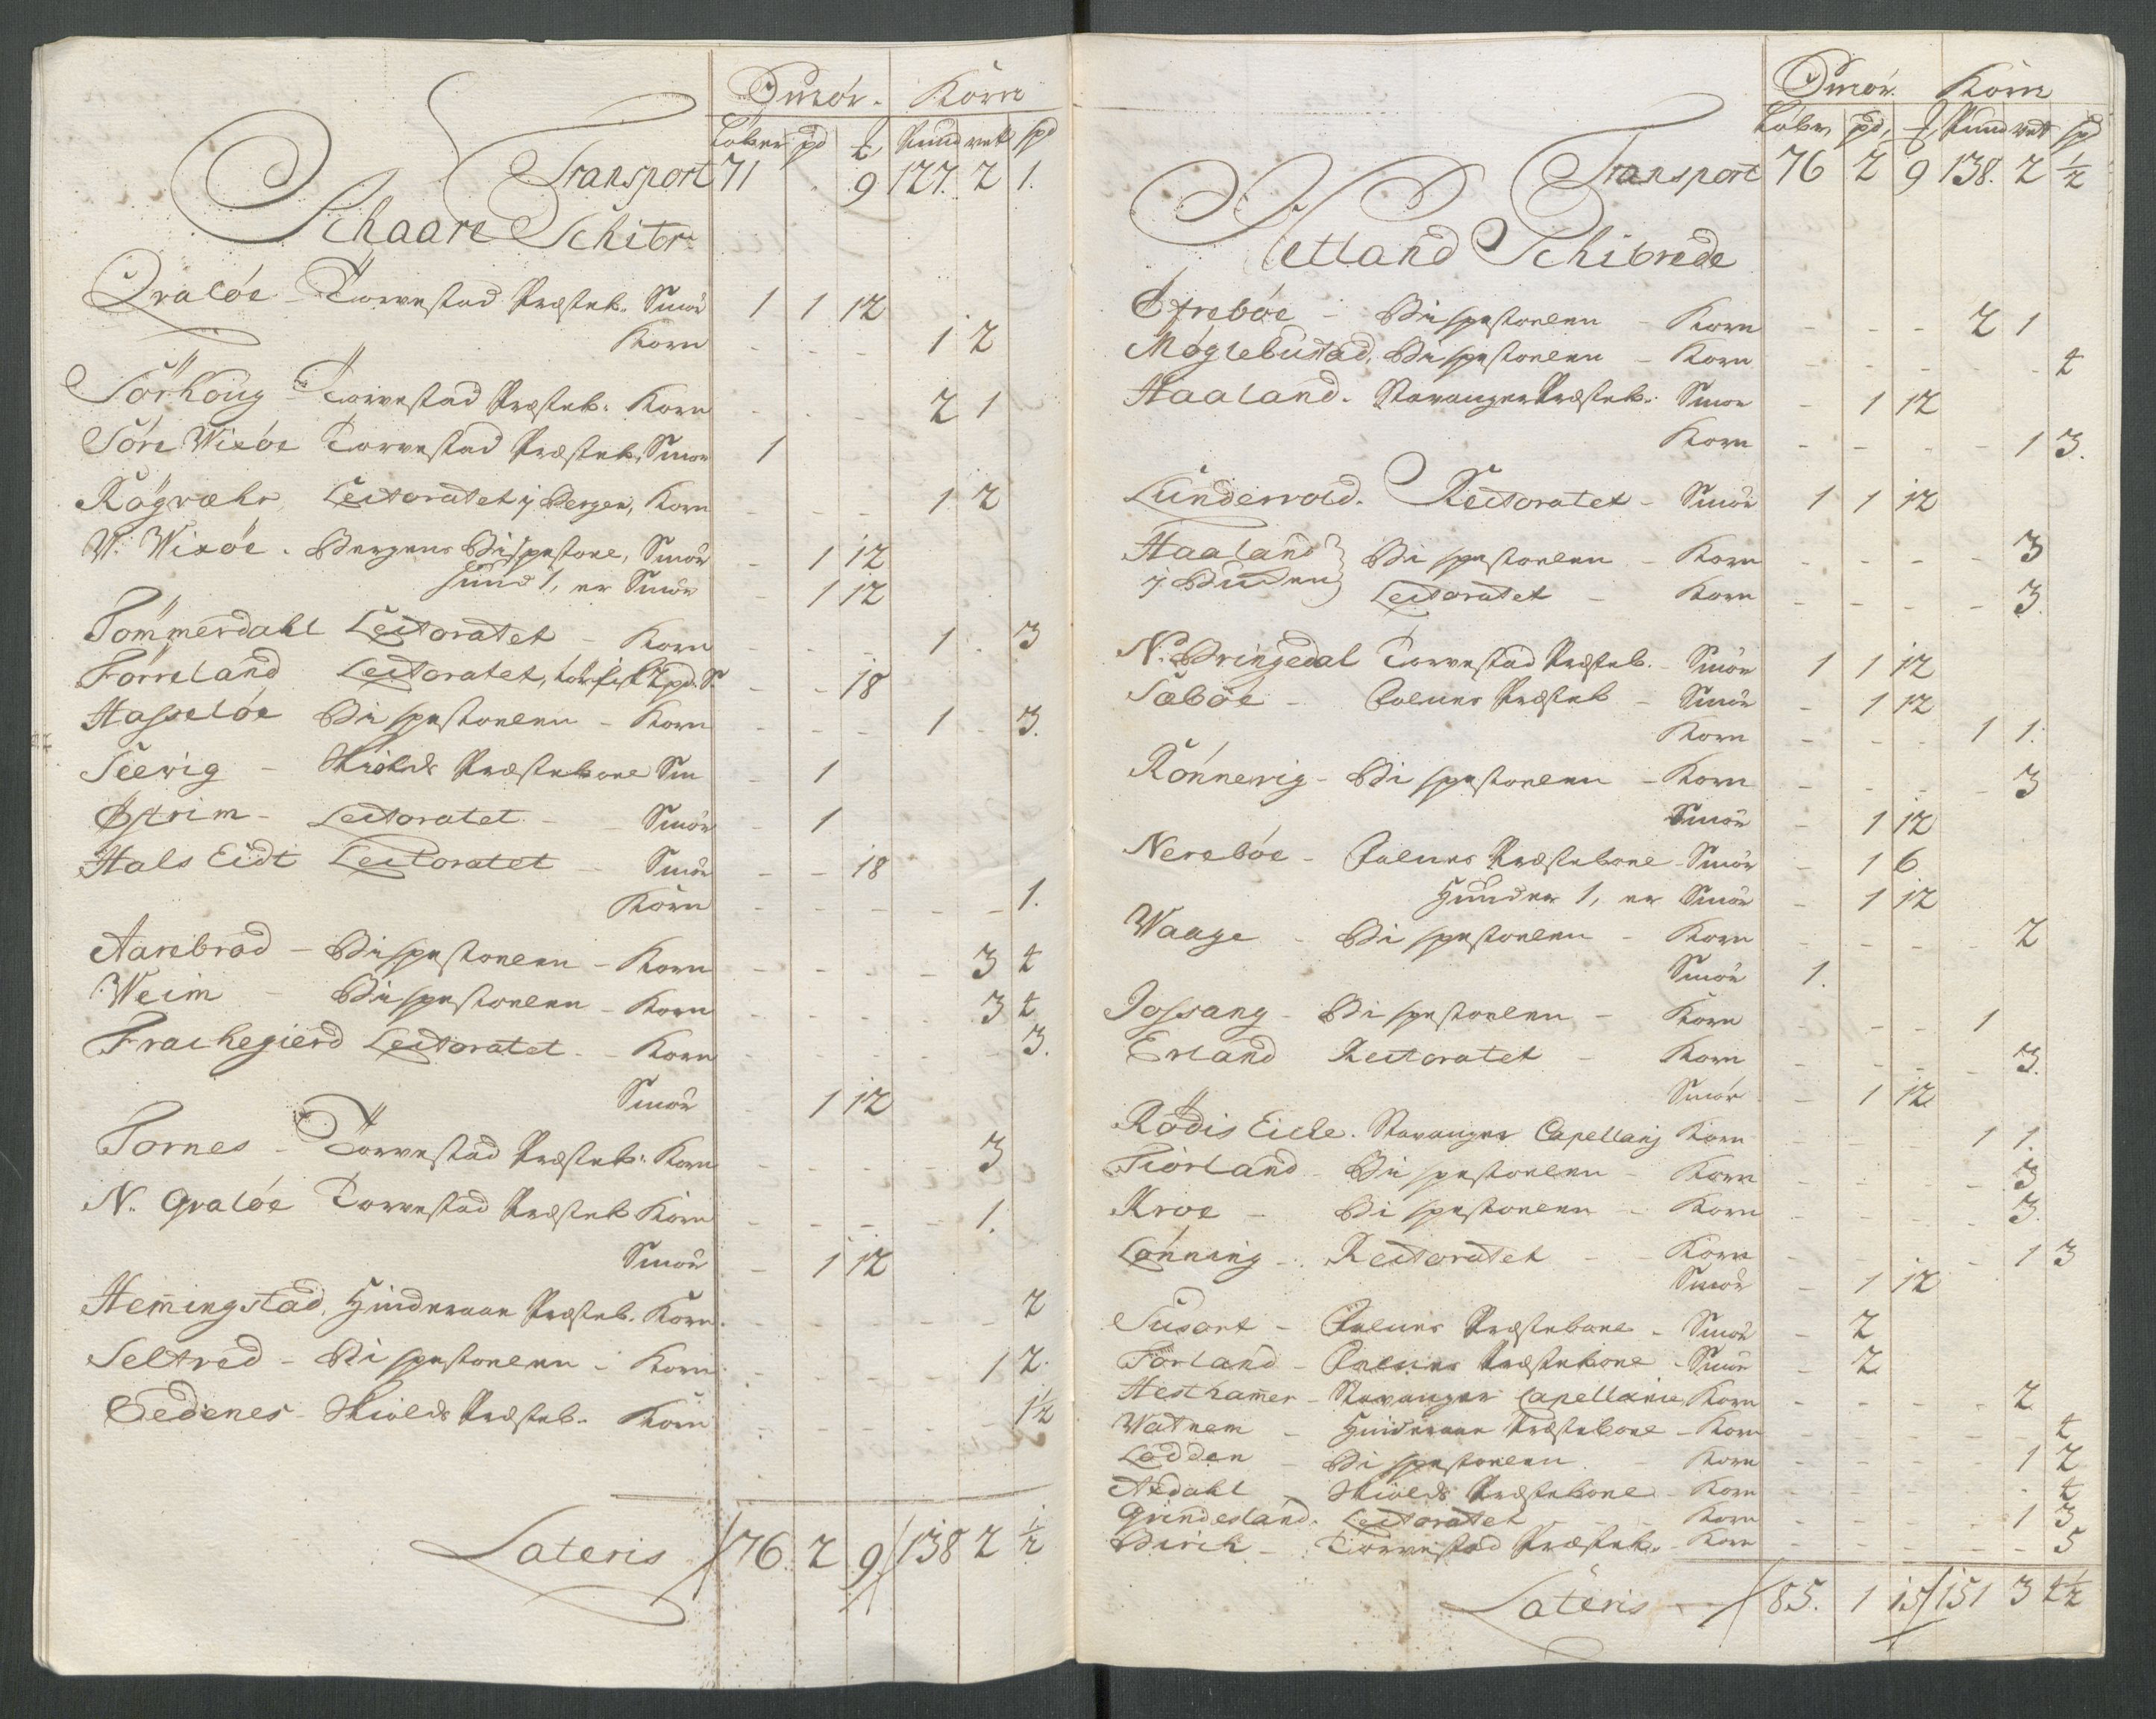 Smör. Korn
Løber pd ℔ Pund vet spd
Transport 71 . 9 127. 2 1.
Schaare Schibr:
Qvaløe Torvestad Præsteb. Smör 1 1 12
Korn - - - 1 2
Sörhoug Torvestad Præsteb. Korn - - - 2 1
Søre Wixøe Torvestad Præsteb. Smør 1
Røgvæhr Lectoratet j Bergen, Korn - - - 1 2
N. Wixöe. Bergens Bispestoel, Smör - 1 12
hund 1, er Smör - 1 12
Tömmerdahl Lectoratet - Korn - - - 1 . 3
Førreland Lectoratet, - - 18
Hasseløe Bispestoelen - Korn - - - 1 - 3.
Seevig - Skiolds Præsteboel Sm - 1
Østrim - Lectoratet - Smör - 1
Hals Eidt Lectoratet - Smör - - 18
Korn - - - - - 1.
Aarebrod - Bispestoelen - Korn - - - - 3 4
Weim - Bispestoelen - Korn - - - - 3 4
Frachegierd Lectoratet - Korn - - - - - 3.
Smör - 1 12
Tornes - Torvestad Præsteb. Korn - - - - 3
N. Qvaløe Torvestad Præsteb Korn - - - - 1.
Smör - 1 12
Hemingstad, Hinderaae Præsteb. Korn. - - - - - 2
Seltved - Bispestoelen - Korn - - - - 1 2.
Gedenes - Skiolds Præsteb. Korn - - - - - 1½
Lateris 76. 2 9 138 2 ½
Smör. Korn
Løber pd, ℔ Pund vet spd
Transport 76 2 9 138. 2 ½
Hetland Schibrede
Øfrebøe - Bispestoelen - Korn - - - 2 1
Møglebustad, Bispestoelen - Korn - - - - - 4
Haaland. Stavanger Præsteb. Smør - 1 12
Korn - - - - 1 3.
Lundervold. Rectoratet - Smör 1 1 12
Haaland } Bispestoelen - Korn - - - - 3
j Buden } Lectoratet - Korn - - - - 3.
N. Bringedal Torvestad Præsteb. - Smör 1 1 12
Sæbøe - Præsteb - Smör - 1 12
Korn - - - 1 1.
Rønnevig - Bispestoelen - Korn - - - - 3
Smör - 1 12
Nerebøe - Præsteboel - Smör - 1 6
Hunder 1, er Smör - 1 12
Waage - Bispestoelen - Korn - - - - 2
Smör 1.
Jossang - Bispestoelen - Korn - - - 1
Erland Rectoratet - Korn - - - - 3.
Smör - 1 12
Rødis Eide. Stavanger Capellanj Korn - - - 1 1.
Fiörland - Bispestoelen - Korn - - - - 3
Kroe - Bispestoelen - Korn - - - - 3.
Lønning - Rectoratet - Korn - - - - 1 3
Smör - 1 12
Susort - Præsteboel - Smör - 2
Førland - Præsteboel - Smör - 2
Hesthamer - Stavanger Capellanie Korn - - - - 2
Watnem - Hinderaae Præsteboel - Korn - - - - - 4
Lodden - Bispestoelen - Korn - - - - 1 2
Axdahl - Skiolds Præsteboel - Korn - - - - - 4
Grindesland. Lectoratet - Korn - - - - 1 3
Birch - Torvestad Præsteb. - Korn - - - - - 5
Lateris 85. 1 15 151 3 4½